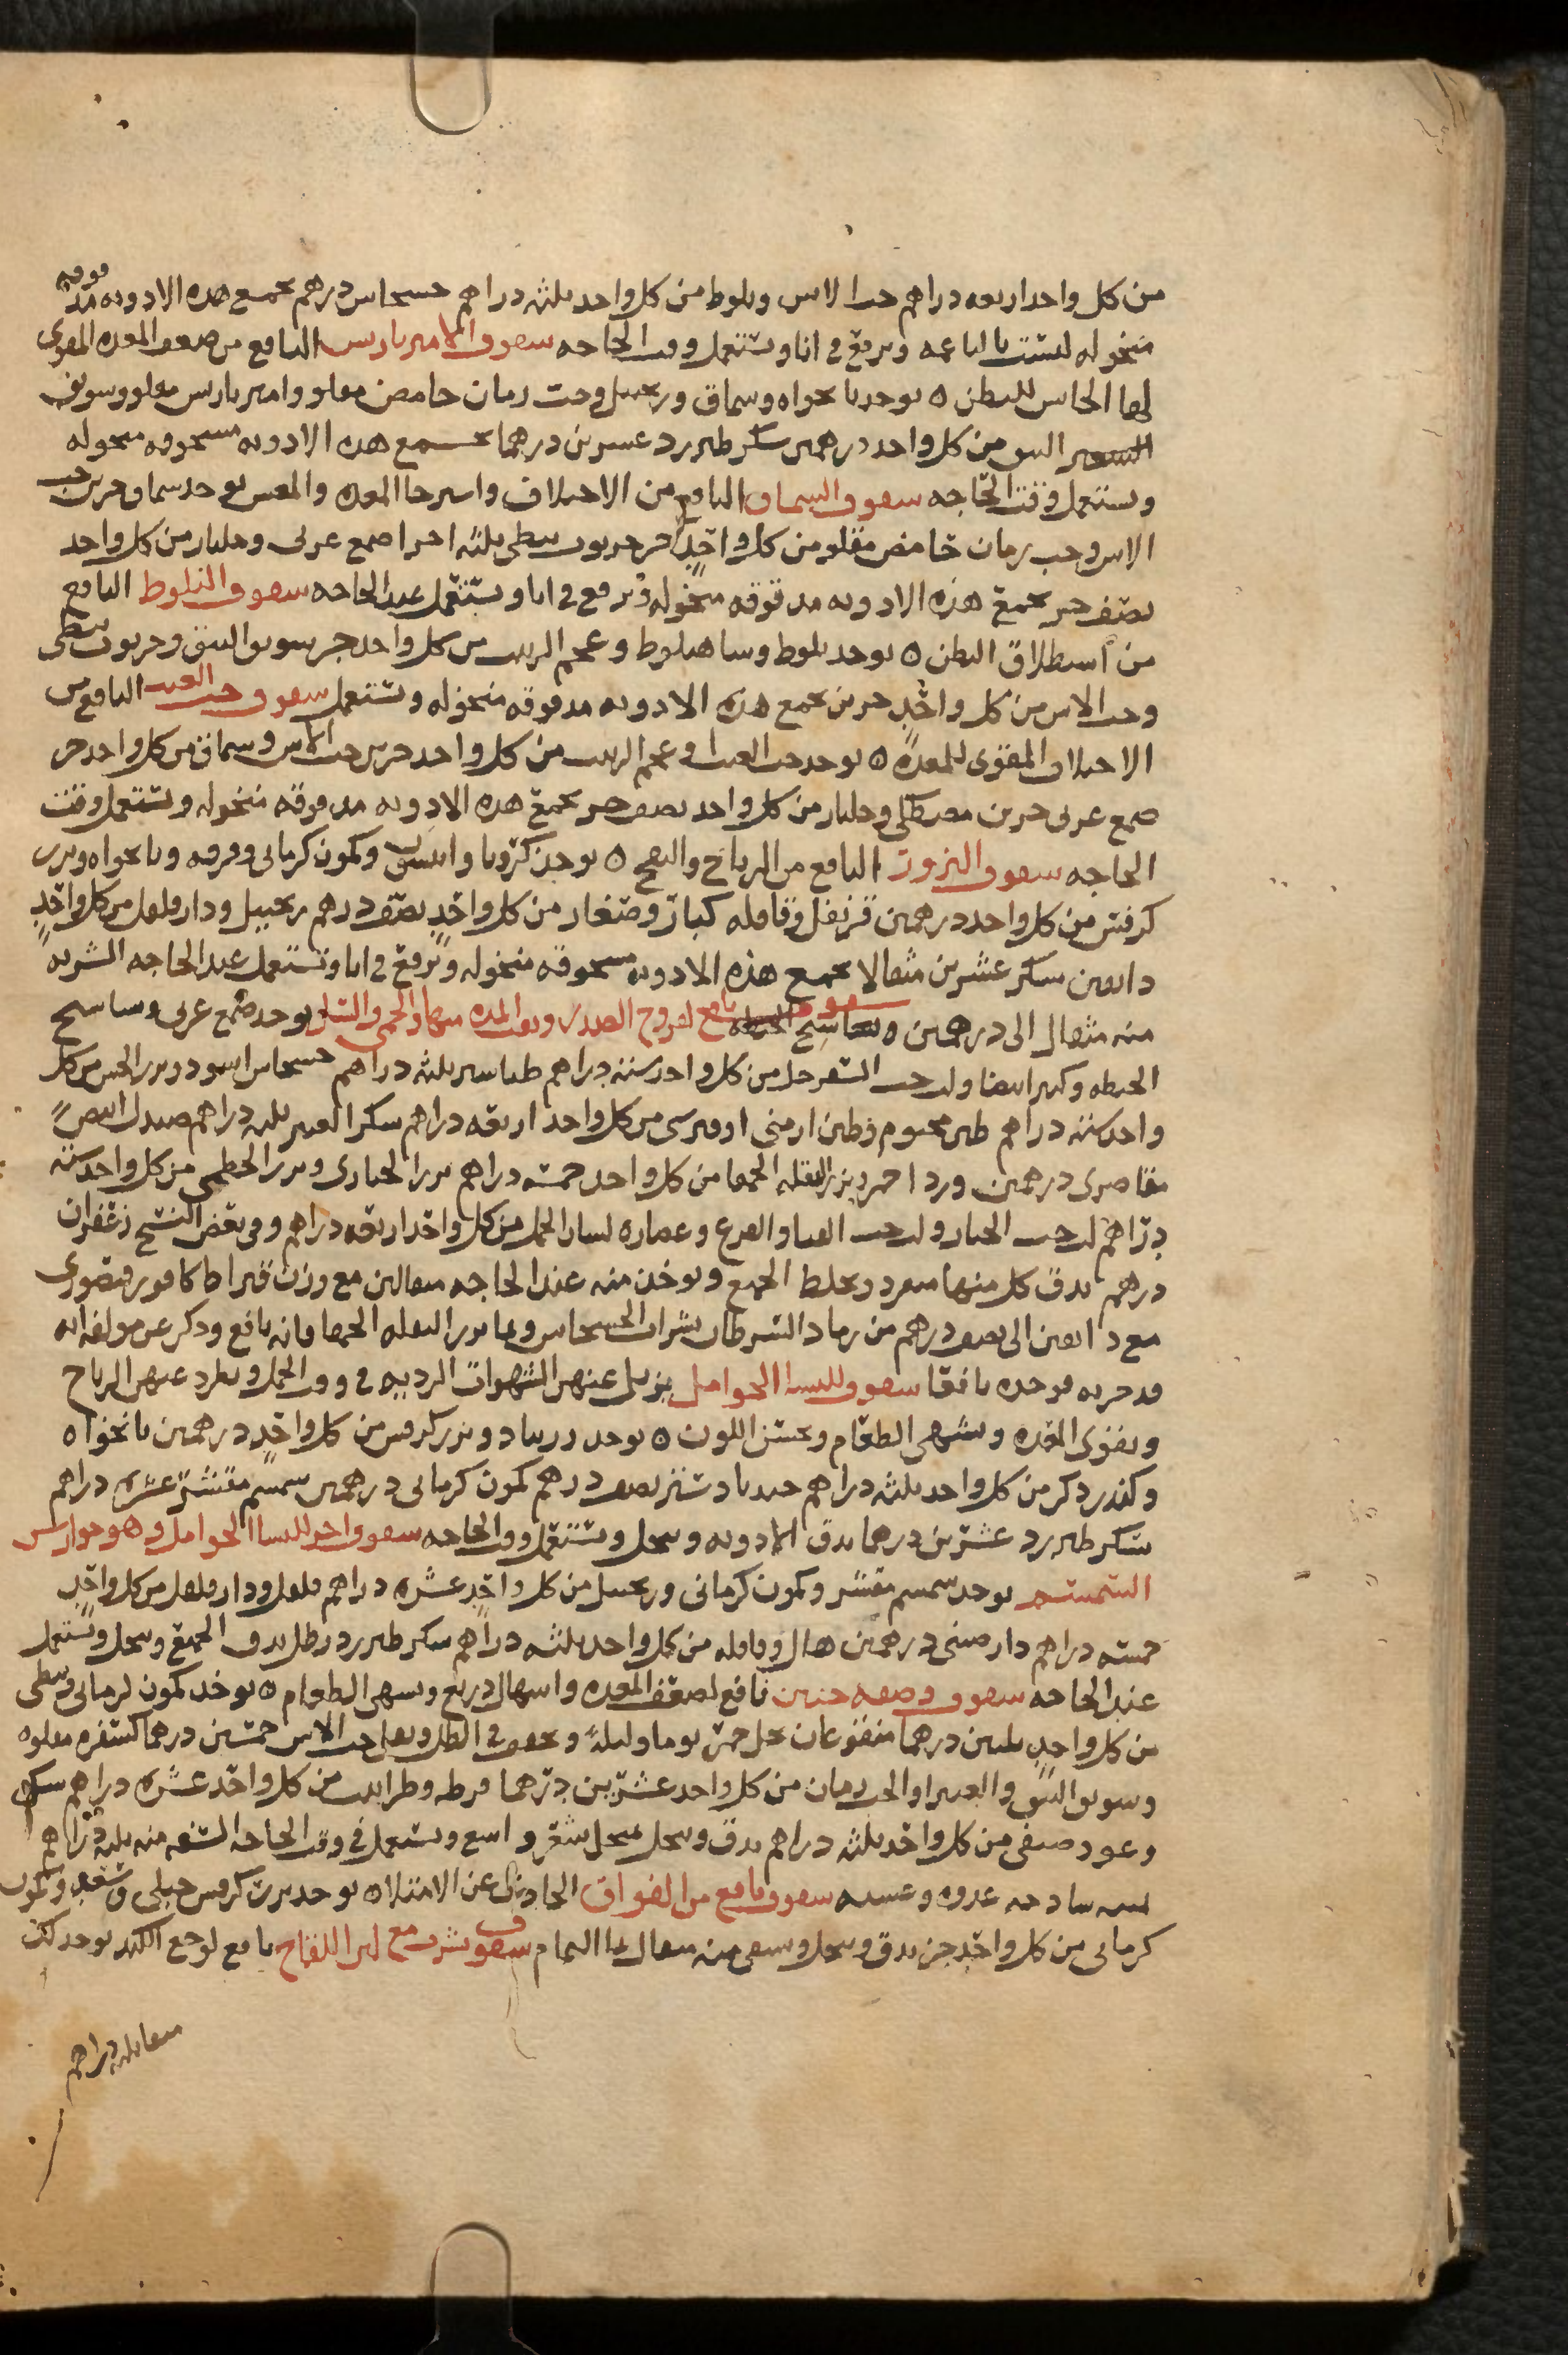 من كل واحد اربعه دراهم حب الاس وبلوط من كل واحد ثلثه دراهم خشخاش درهم تجمع هذه الادويه مدقوقه
منخوله ليست بالناعمه وترفع في انا وتستعمل وقت الحاجه سفوف الامبرباريس النافع من ضعف المعده المقوى
لها الحابس للبطن ٥ يوخذ نانخواه وسماق وزنجبيل وحب رمان حامض مقلو وامبرباريس مقلو وسويق
النبق من كل واحد درهمين سكر طبرزد عشرين درهما تجمع هذه الادويه مسحوقه منخوله
وتستعمل وقت الحاجه سفوف السماق النافع من الاختلاف واسترخا المعده والمغس يوخذ سماق جزين حب
الاس وحب رمان حامض مقلو من كل واحد جز خرنوب نبطي ثلثه اجزا صمغ عربي وجلنار من كل واحد
نصف جز تجمع هذه الادويه مدقوقه منخوله وترفع في انا وتستعمل عند الحاجه سفوف البلوط النافع
من استطلاق البطن ٥ يوخذ بلوط وشاهبلوط وعجم الزبيب من كل واحد جز سويق النبق وخرنوب نبطي
وحب الاس من كل واحد جزين تجمع هذه الادويه مدقوقه منخوله وتستعمل سفوف حب العنب النافع من
الاختلاف المقوى للمعده ٥ يوخذ حب العنب او عجم الزبيب من كل واحد جزين حب الاس وسماق من كل واحد جز
صمغ عربي جزين مصطكى وجلنار من كل واحد نصف جز تجمع هذه الادويه مدقوقه منخوله وتستعمل وقت
الحاجه سفوف البزور النافع من الرياح والنفخ ٥ يوخذ كرويا وانيسون وكمون كرماني وقرفه ونانخواه وبزر
كرفس من كل واحد درهمين قرنفل وقاقله كبار وصغار من كل واحد نصف درهم زنجبيل ودارفلفل من كل واحد
دانقين سكر عشرين مثقالا تجمع هذه الادويه مسحوقه منخوله وترفع في انا وتستعمل عند الحاجه الشربه
منه مثقال الى درهمين سفوف نافع لقروح الصدر ونفث المده منها والحمى والسل يوخذ صمغ عربي ونشاستج
الحنطه وكثيرا بيضا ولب حب السفرجل من كل واحد سته دراهم طباشير ثلثه دراهم خشخاش اسود وبزر الخس من كل
واحد سته دراهم طين مختوم وطين ارمني او قبرسي من كل واحد اربعه دراهم سكر العشر ثلثه دراهم صندل ابيض
مقاصري درهمين ورد احمر وبزر البقله الحمقا من كل واحد خمسه دراهم بزر الخبازى وبزر الخطمى من كل واحد سته
دراهم لب حب الخيار ولب حب القثا والقرع وعصاره لسان الحمل من كل واحد اربعه دراهم وفي بعض النسخ زعفران
درهم يدق كل منها مفرد ويخلط الجميع ويوخذ منه عند الحاجه مثقالين مع وزن قيراط كافور فنصوري
مع دانقين الى نصف درهم من رماد السرطان بشراب الخشخاش وبما بزر البقله الحمقا فانه نافع وذكر عن مولفه انه
قد جربه فوجده نافعا سفوف للنسا الحوامل يزيل عنهن الشهوات الرديه في وقت الحمل ويطرد عنهن الرياح
ويقوى المعده ويشهى الطعام ويحسن اللون ٥ يوخذ زرنباد وبزر كرفس من كل واحد درهمين نانخواه
وكندر ذكر من كل واحد ثلثه دراهم جندبادستر نصف درهم كمون كرماني درهمين سمسم مقشر عشره دراهم
سكر طبرزد عشرين درهما يدق الادويه وينخل وتستعمل وقت الحاجه سفوف اخر للنسا الحوامل وهو جوارش
السمسم يوخذ سمسم مقشر وكمون كرماني وزنجبيل من كل واحد عشره دراهم فلفل ودارفلفل من كل واحد
خمسه دراهم دارصيني درهمين هال وقاقله من كل واحد ثلثه دراهم سكر طبرزد رطل يدق الجميع وينخل وتستعمل
عند الحاجه سفوف وصفه حنين نافع لضعف المعده واسهال ذريع ويشهى الطعام ٥ يوخذ كمون كرماني ونبطي
من كل واحد ثلثين درهما منقوعان بخل خمر يوما وليله ويجفف في الظل ويقلى حب الاس خمسين درهما كسفره مقلوه
وسويق النبق والغبيرا والحب رمان من كل واحد عشرين درهما قرطه وطراثيث من كل واحد عشره دراهم سك
وعود صنفى من كل واحد ثلثه دراهم يدق وينخل بمنخل شعر واسع وتستعمل في وقت الحاجه السفه منه ثلثه دراهم
ساذجه غدوه وعشيه سفوف نافع من الفواق الحادث عن الامتلا ٥ يوخذ بزر كرفس جبلي وسعد وكمون
كرماني من كل واحد جز يدق وينخل ويسقى منه مثقال بما النمام سفوف يشرب مع لبن اللقاح نافع لوجع الكبد يوخذ لك
دراهم